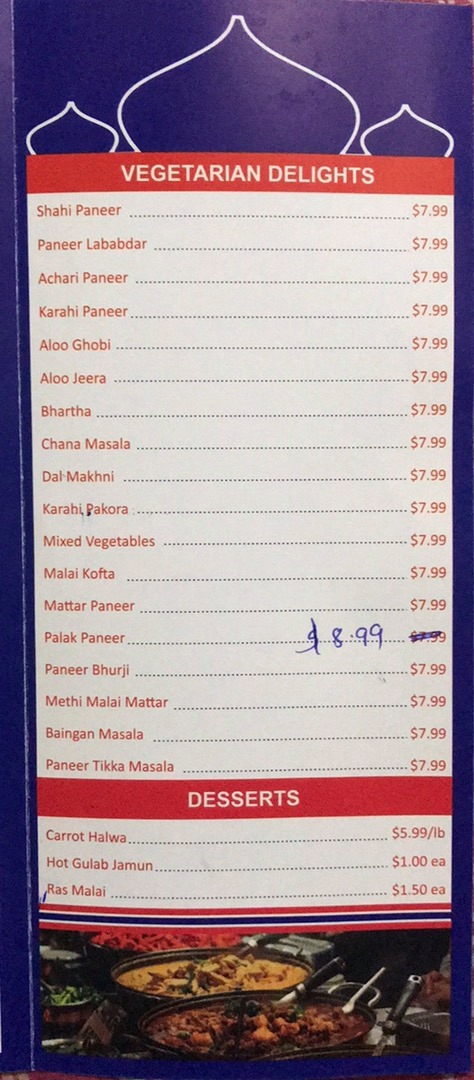 VEGETARIAN DELIGHTS
Shahi Paneer $7.99
Paneer Lababdar $7.99
Achari Paneer $7.99
Karahi Paneer $7.99
Aloo Ghobi $7.99
Aloo Jeera $7.99
Bhartha $7.99
Chana Masala $7.99
Dal Makhni $7.99
Karahi Pakora $7.99
Mixed Vegetables $7.99
Malai Kofta $7.99
Mattar Paneer $7.99
Palak Paneer $8.99 $7.99
Paneer Bhurji $7.99
Methi Malai Mattar $7.99
Baingan Masala $7.99
Paneer Tikka Masala $7.99
DESSERTS
Carrot Halwa $5.99/lb
Hot Gulab Jamun $1.00 ea
Ras Malai $1.50 ea